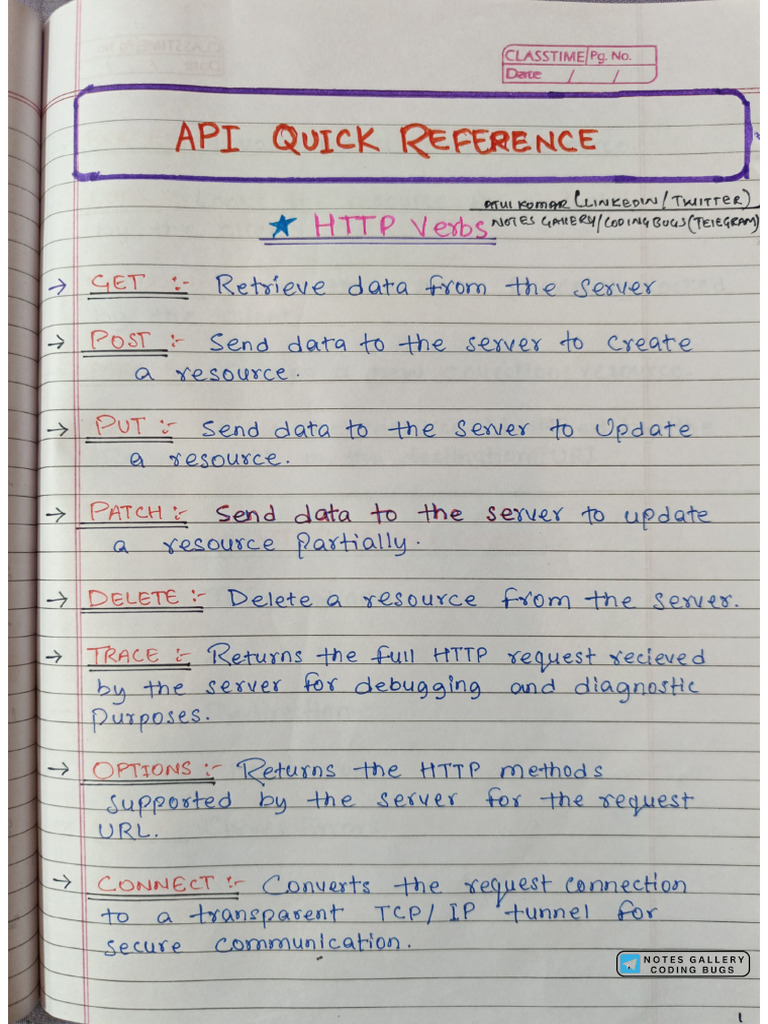 CLASSTIME Pg. No.
Date / /
API QUICK REFERENCE
ATUL KUMAR (LINKEDIN / TWITTER)
★ HTTP Verbs
NOTES GALLERY / CODING BUGS (TELEGRAM)
→ GET :- Retrieve data from the server
→ POST :- Send data to the server to create
a resource.
→ PUT :- Send data to the server to update
a resource.
→ PATCH :- Send data to the server to update
a resource partially.
→ DELETE :- Delete a resource from the server.
→ TRACE :- Returns the full HTTP request recieved
by the server for debugging and diagnostic
purposes.
→ OPTIONS :- Returns the HTTP methods
supported by the server for the request
URL.
→ CONNECT :- Converts the request connection
to a transparent TCP/IP tunnel for
secure communication.
NOTES GALLERY
CODING BUGS
1